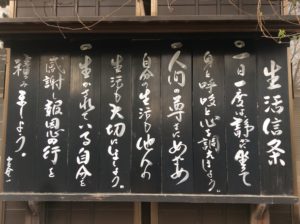 生活信条
一 一日一度は静かに坐って
身と呼吸と心を調えましょう。
一 人間の尊さにめざめ
自分の生活も他人の
生活も大切にしましょう。
一 生かされている自分を
感謝し報恩の行を
積みましょう。